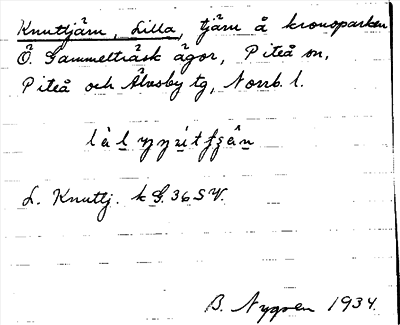 Knuttjärn, Lilla, tjärn å kronoparken
Ö. Gammelträsk ägor, Piteå sn,
Piteå och Älvsby tg, Norrb. l.
L. Knuttj. k G. 36 SV.
B. Nygren 1934.